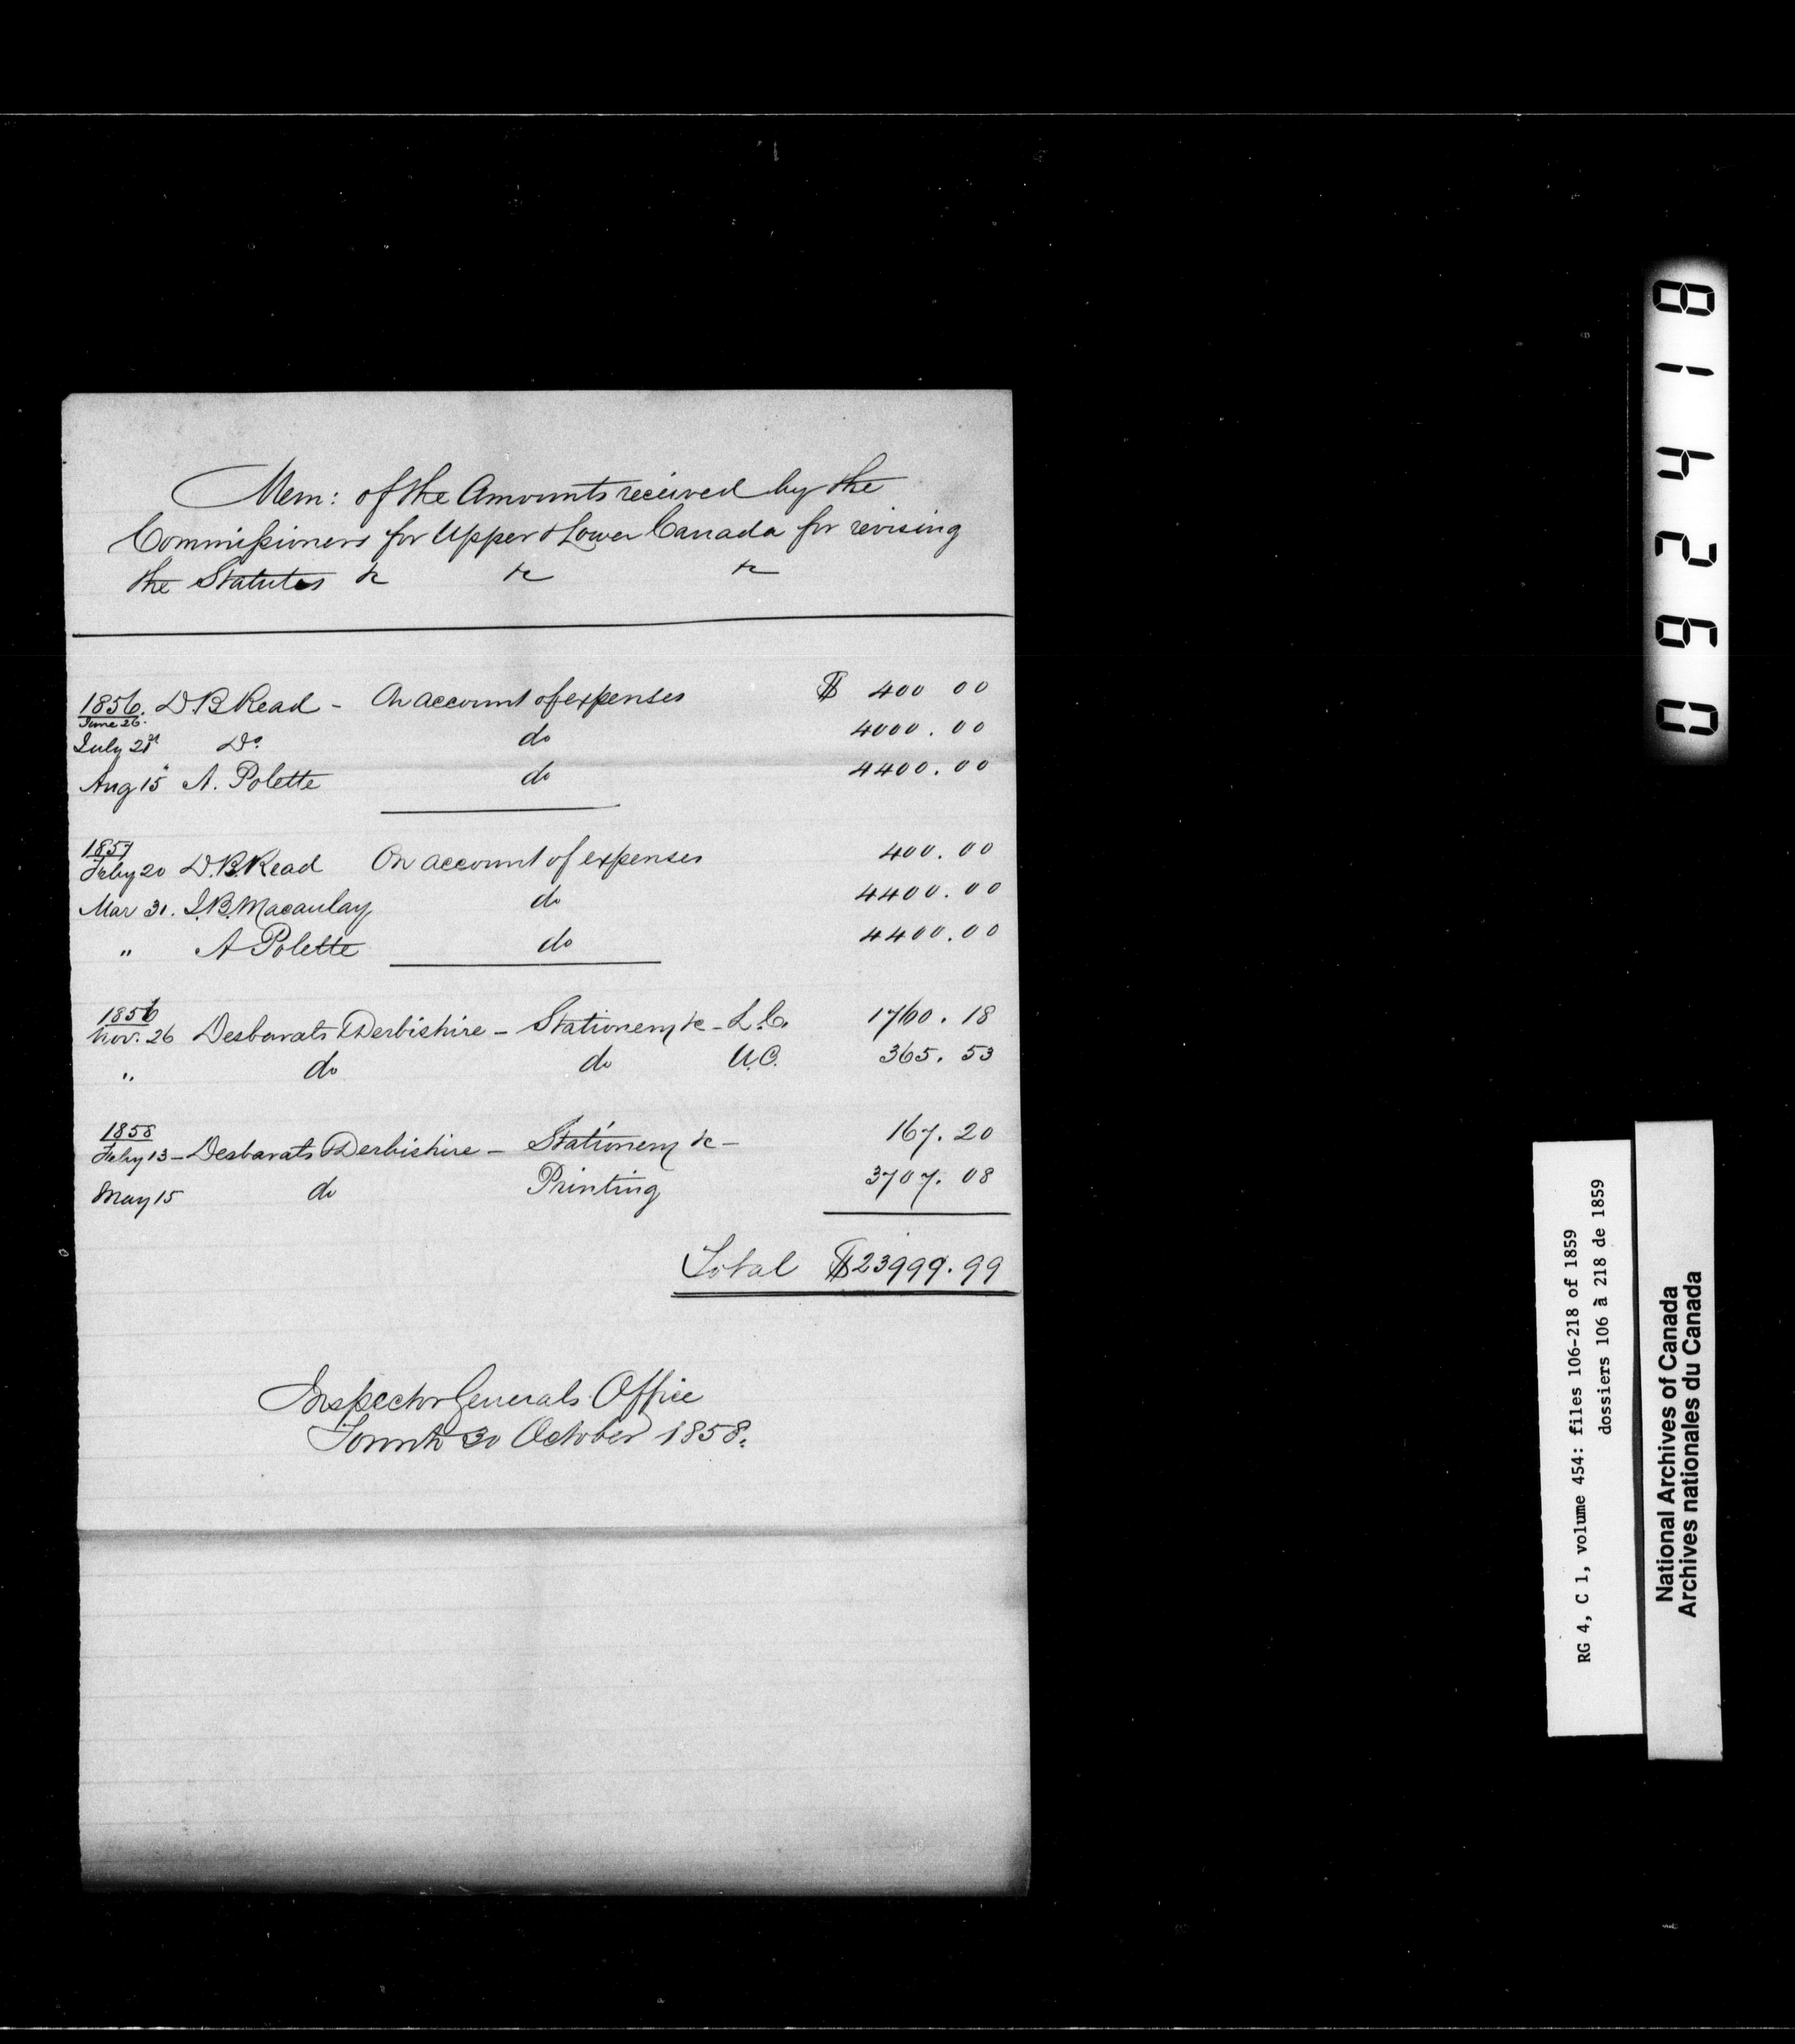 Mem: of the Amounts received by the
Commissioners for Upper & Lower Canada for revising
the Statutes &c &c &c
1856. D B Read - On account of expenses $ 400 00
June 26.
July 21st Do. do 4000.00
Aug 15 " A. Polette do 4400.00
1857
Feby 20 D.B. Read On account of expenses 400.00
Mar 31. J.B. Macaulay do 4400.00
" A Polette do 4400.00
1856
Nov. 26 Desbarats & Derbishire - Stationery &c - L.C. 1760.18
" do do U.C. 365.53
1858
Feby 13 - Desbarats & Derbishire - Stationery &c - 167.20
May 15 do Printing 3707.08
Total $23999.99
Inspector Generals Office
Toronto 30 October 1858.
814260
RG 4, C 1, volume 454: files 106-218 of 1859
dossiers 106 à 218 de 1859
National Archives of Canada
Archives nationales du Canada